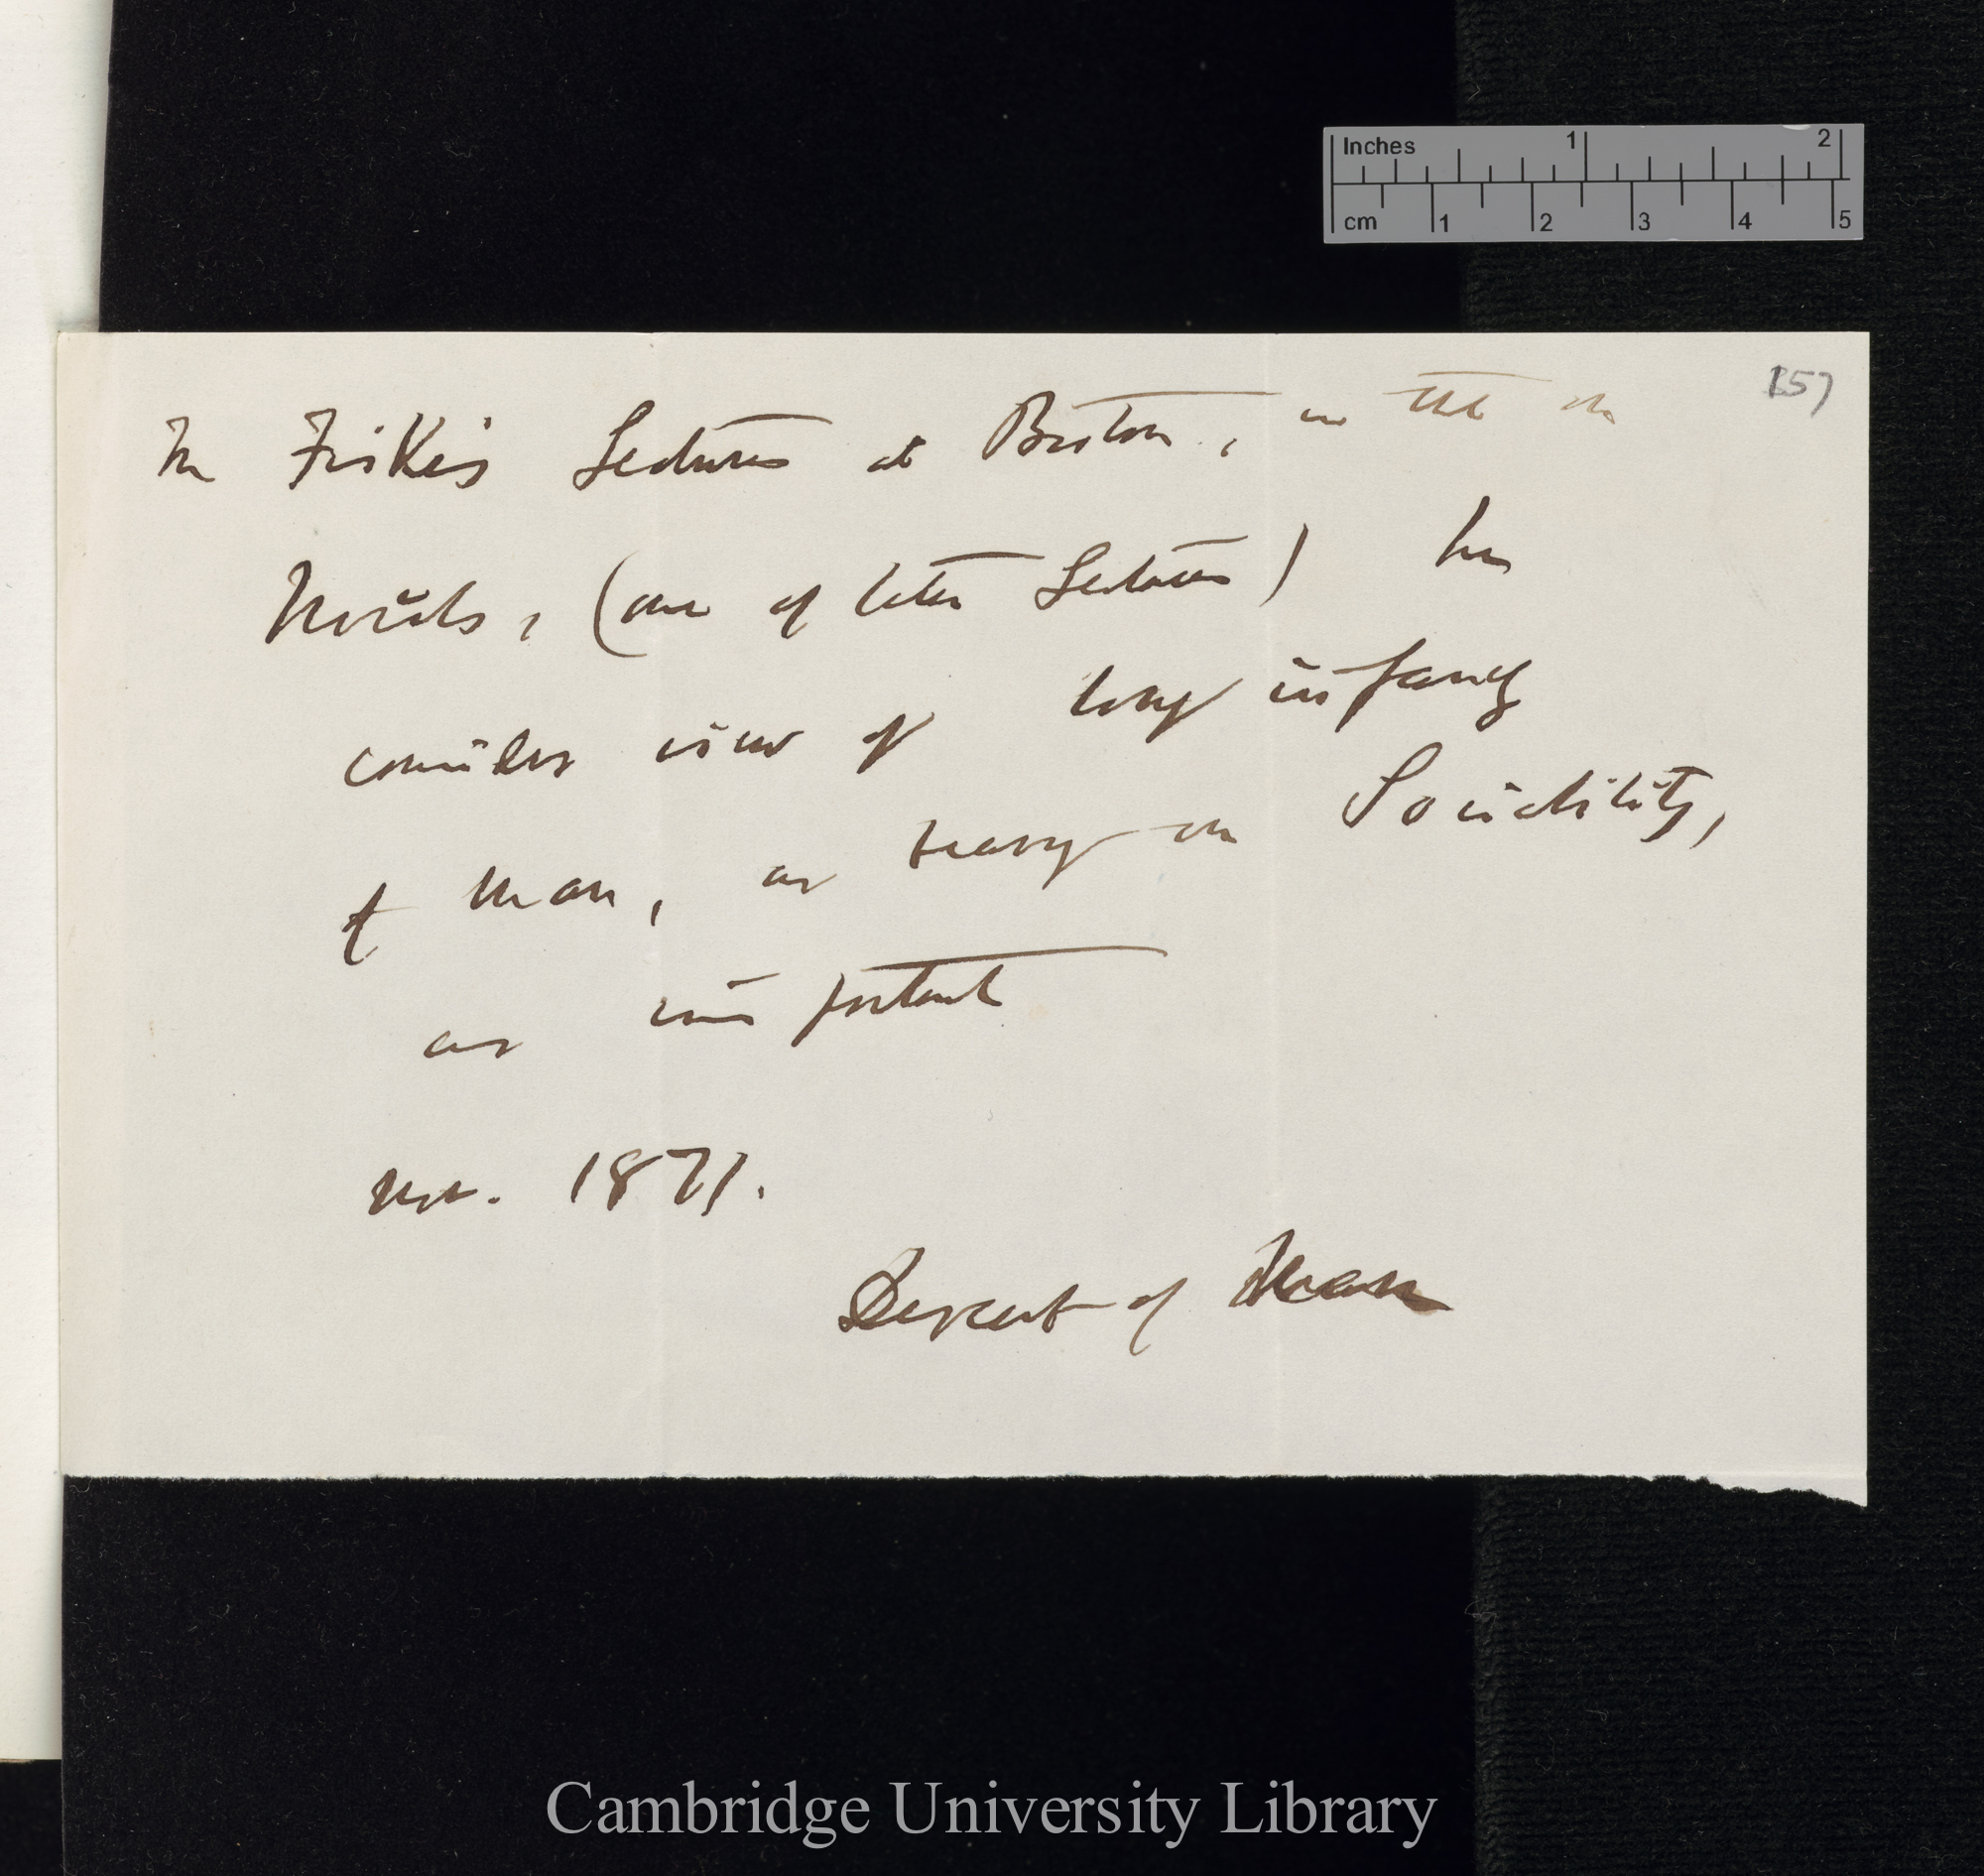 Inches 1 2
cm 1 2 3 4 5
157
Mr Fiske's Lectures at Boston, in that on
Morals, (one of later Lectures) his
consider view of long infancy
of Man, as bearing on Sociability,
as important
Nov. 1871.
Descent of Man
Cambridge University Library